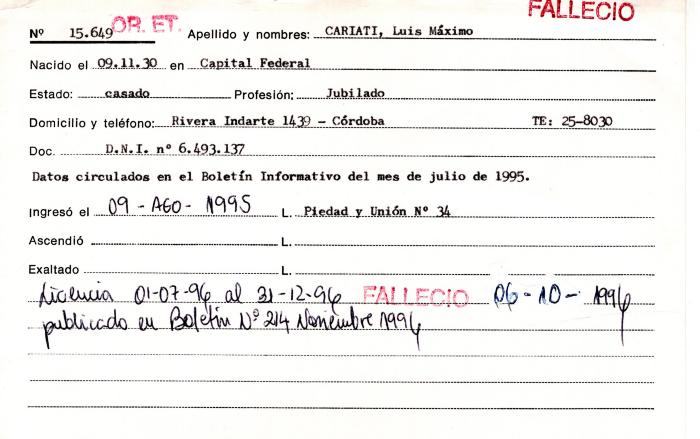 FALLECIO
Nº 15.649 OR. ET. Apellido y nombres: CARIATI, Luis Máximo
Nacido el 09.11.30 en Capital Federal
Estado: casado Profesión: Jubilado
Domicilio y teléfono: Rivera Indarte 1439 - Córdoba TE: 25-8030
Doc. D.N.I. nº 6.493.137
Datos circulados en el Boletín Informativo del mes de julio de 1995.
Ingresó el 09 - AGO - 1995 L. Piedad y Unión Nº 34
Ascendió L.
Exaltado L.
Licencia 01-07-96 al 31-12-96 FALLECIO 06-10-1996
publicado en Boletín Nº 214 Noviembre 1996